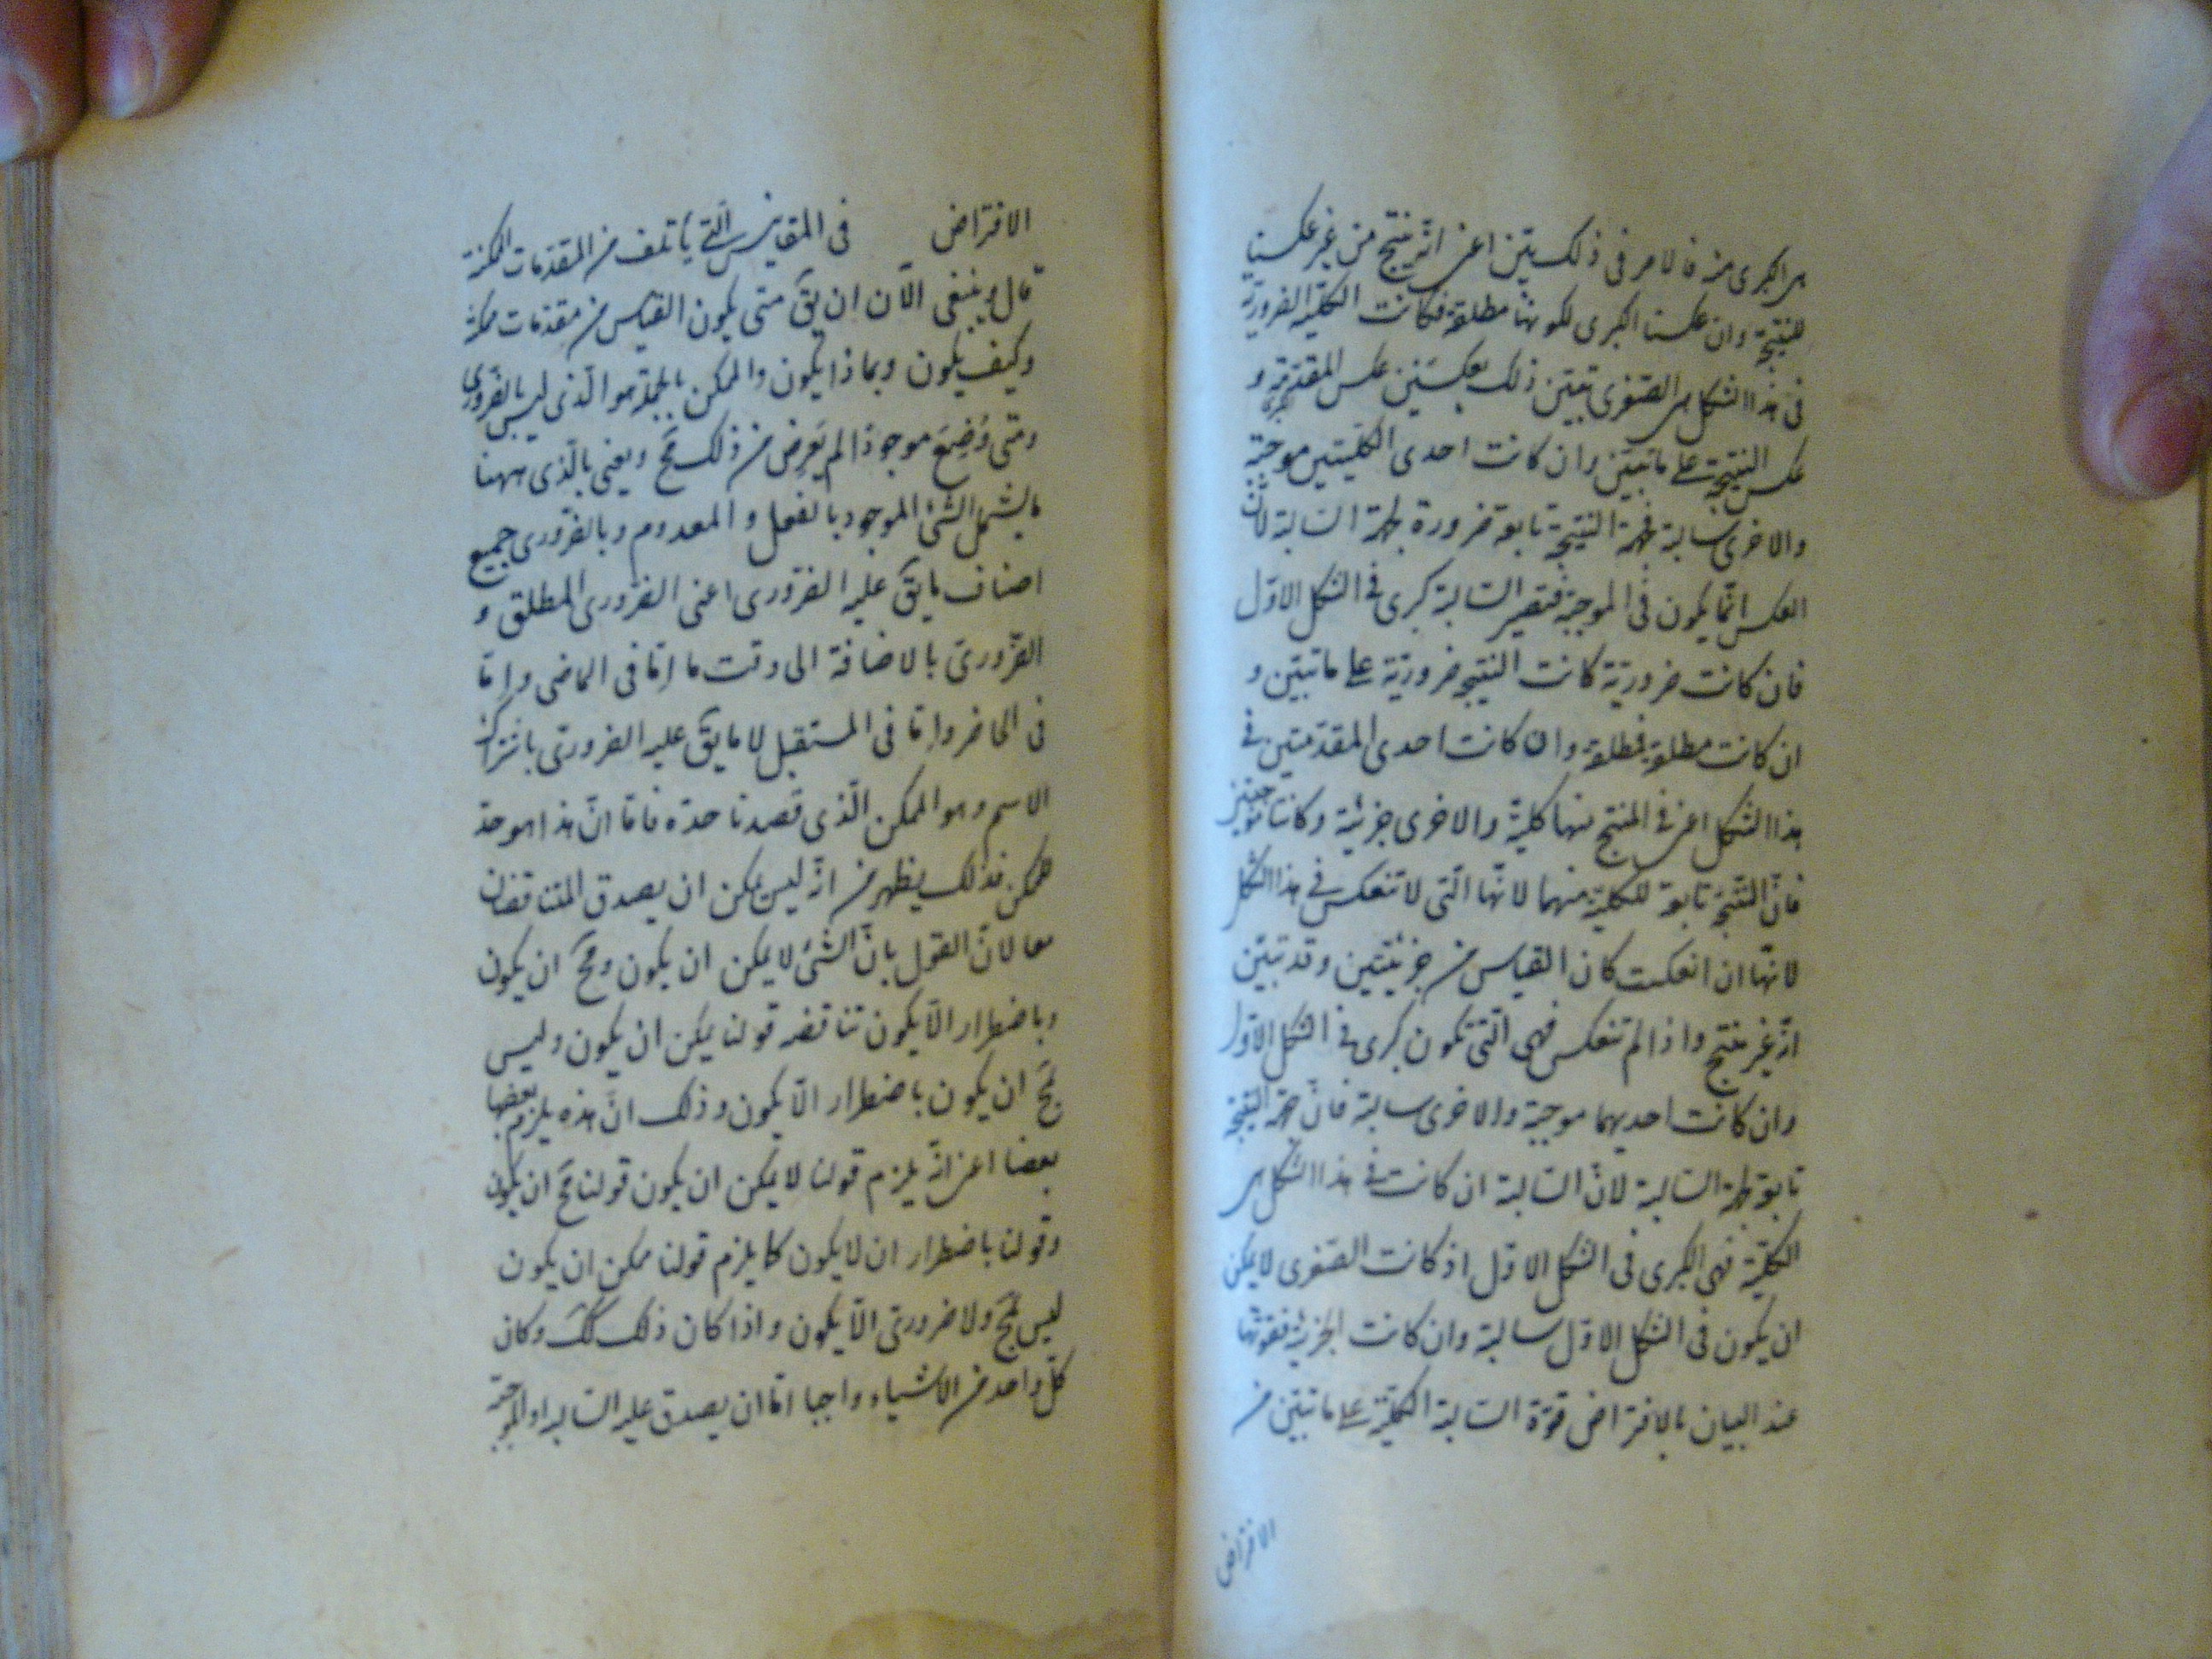 هى الكبرى منه فالامر فى ذلك بيّن اعنى انّه ينتج من غير عكسنا
للنتيجة وان عكسنا الكبرى لكونها مطلقة فكانت الكليّة الضروريّة
فى هذا الشكل هى الصّغرى تبيّن ذلك بعكسين عكس المقدّمة و
عكس النتيجة على ما تبيّن وان كانت احدى الكليّتين موجبة
والاخرى سالبة فجهة النتيجة تابعة ضرورة لجهة السّالبة لانّ
العكس انّما يكون فى الموجبة فتصير السّالبة كبرى فى الشكل الاوّل
فان كانت ضروريّة كانت النتيجة ضروريّة على ما تبيّن و
ان كانت مطلقة فمطلقة وان كانت احدى المقدّمتين فى
هذا الشكل اعنى فى المنتج منها كليّة والاخرى جزئيّة وكانتا موجبتين
فانّ النّتيجة تابعة للكليّة منهما لانّها الّتى لا تنعكس فى هذا الشكل
لانّها ان انعكست كان القياس من جزئيّتين وقد تبيّن
انّه غير منتج واذا لم تنعكس فهى الّتى تكون كبرى فى الشكل الاوّل
وان كانت احديهما موجبة والاخرى سالبة فانّ جهة النتيجة
تابعة لجهة السّالبة لانّ السّالبة ان كانت فى هذا الشكل هى
الكليّة فهى الكبرى فى الشكل الاوّل اذ كانت الصّغرى لا يمكن
ان يكون فى الشكل الاوّل سالبة وان كانت الجزئيّة فقوّتها
عند البيان بالافتراض قوّة السّالبة الكليّة على ما تبيّن من
الافتراض
الافتراض فى المقاييس الّتى يأتلف من المقدّمات الممكنة
قال وينبغى الآن ان يقَ متى يكون القياس من مقدّمات ممكنة
وكيف يكون وبماذا يكون والممكن بالجملة هو الّذى ليس بالضّرورى
ومتى وُضِعَ موجودًا لم يَعرِض من ذلك مح ويعنى بالّذى ههنا
ما يشمل الشئ الموجود بالفعل والمعدوم وبالضّرورى جميع
اصناف ما يقَ عليه الضّرورى اعنى الضّرورى المطلق و
الضّرورىّ بالاضافة الى وقت ما امّا فى الماضى وامّا
فى الحاضر وامّا فى المستقبل لا ما يقَ عليه الضرورىّ باشتراك
الاسم وهو الممكن الّذى قصدنا حدّه فامّا انّ هذا هو حدّ
الممكن فذلك يظهر من انّه ليس يمكن ان يصدق المتناقضان
معا لانّ القول بانّ الشئ لا يمكن ان يكون ومح ان يكون
وباضطرار الّا يكون تناقضه قولنا يمكن ان يكون وليس
بمح ان يكون باضطرار الّا يكون وذلك انّ هذه يلزم بعضها
بعضا اعنى انّه يلزم قولنا لا يمكن ان يكون قولنا مح ان يكون
وقولنا باضطرار ان لا يكون كما يلزم قولنا ممكن ان يكون
ليس بمح ولا ضرورىّ الّا يكون واذا كان ذلك كك وكان
كلّ واحد من الاشياء واجبا امّا ان يصدق عليه السّالبة او الموجبة